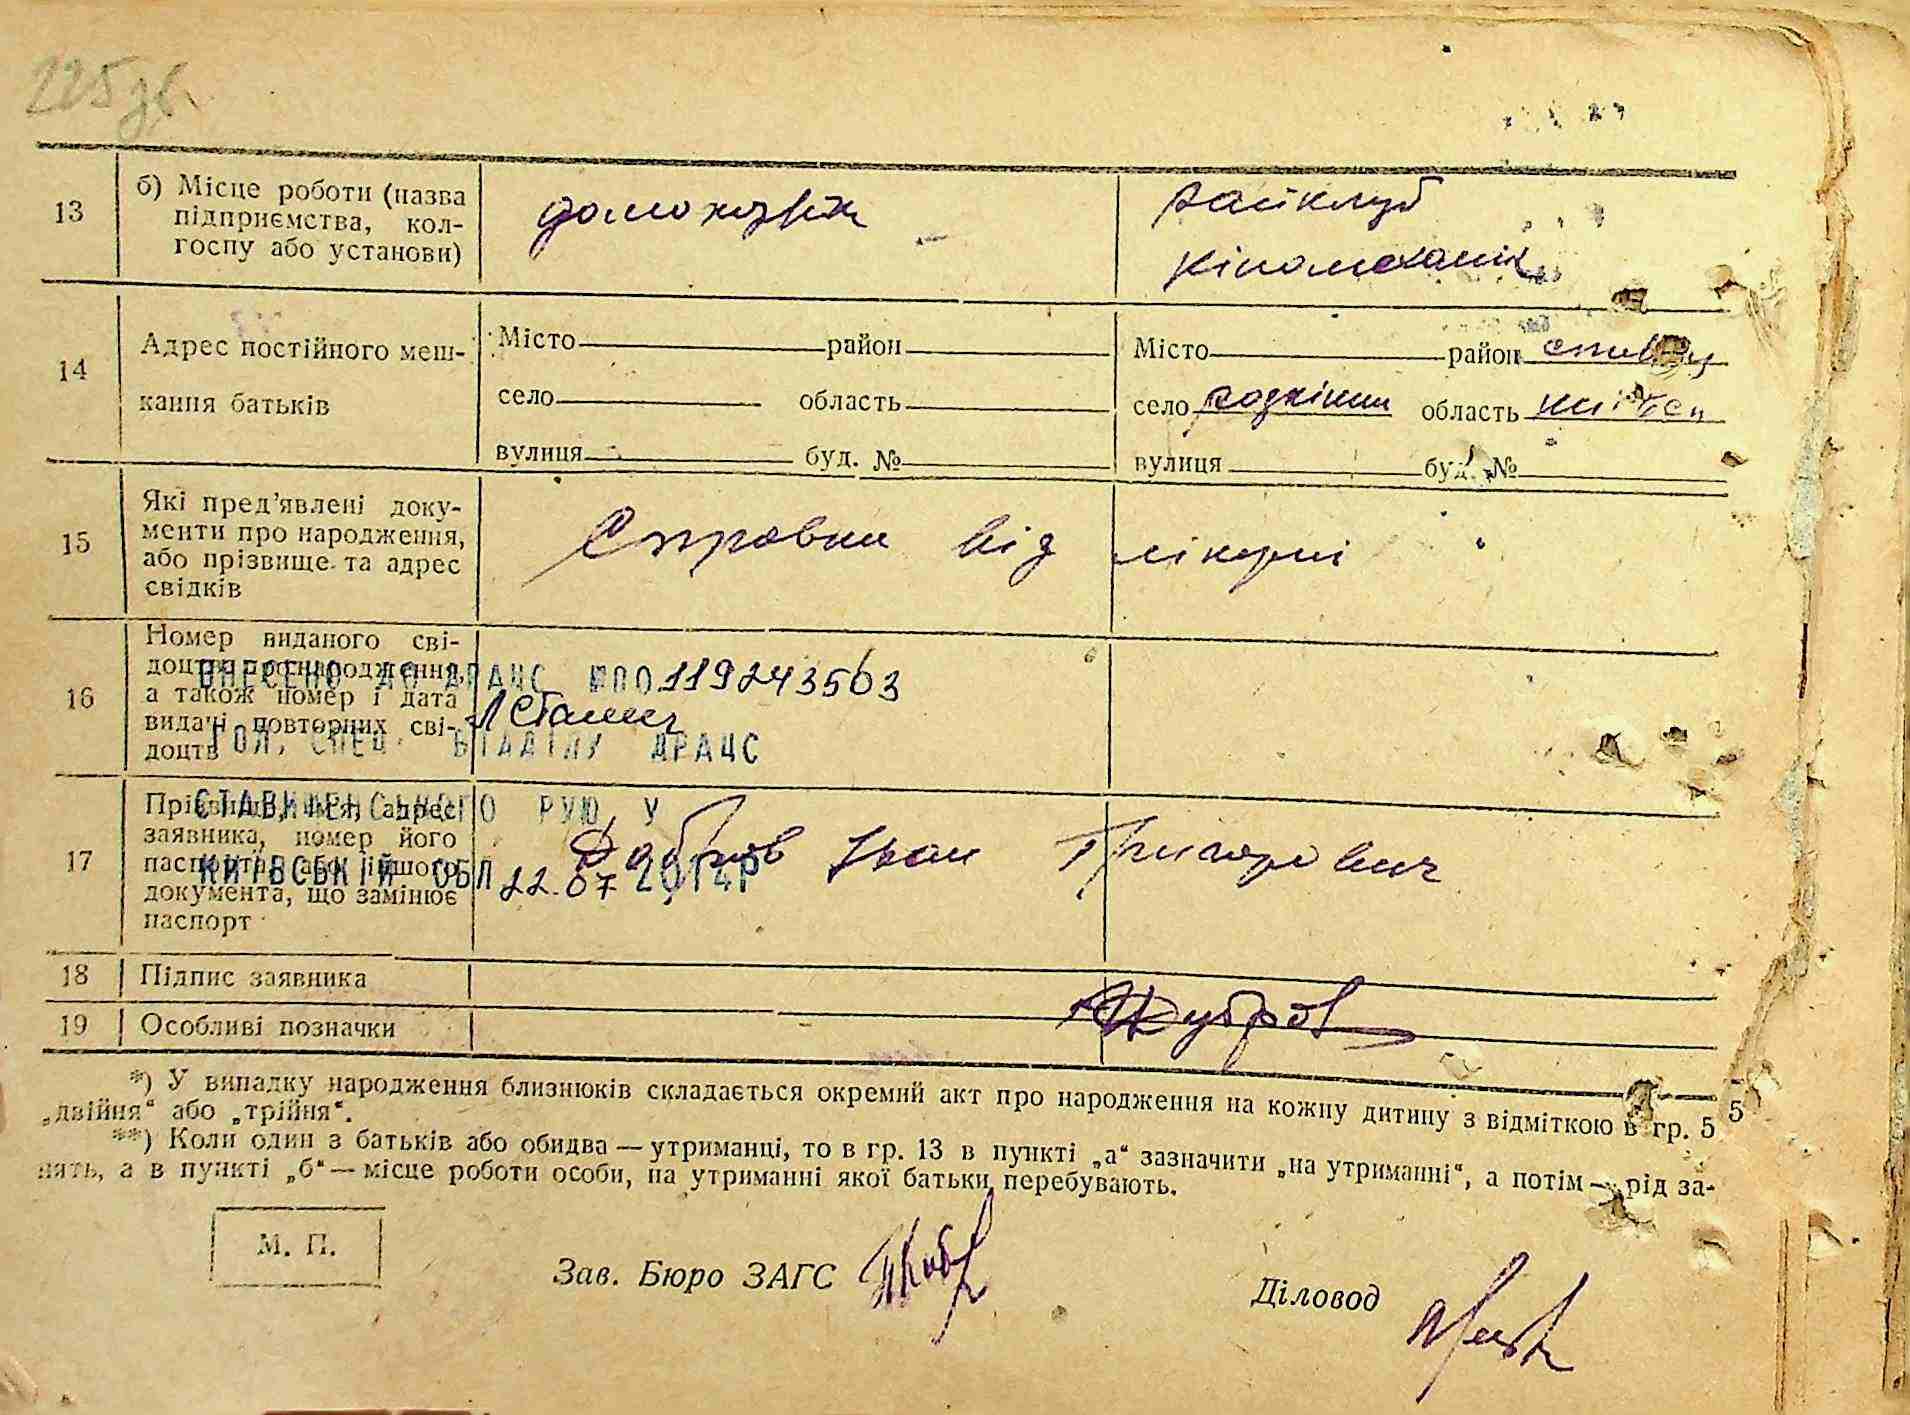 225 зв.
13
б) Місце роботи (назва
підприємства, кол-
госпу або установи)
домогосп.
райклуб
кіномеханік
14
Адрес постійного меш-
кання батьків
Місто район
село область
вулиця буд. №
Місто район
село область
вулиця буд. №
15
Які пред’явлені доку-
менти про народження,
або прізвище та адрес
свідків
Справки від лікарні
16
Номер виданого сві-
доцтва про народження,
а також номер і дата
видачі повторних сві-
доцтв
ВНЕСЕНО ДО ДРАЦС №00119243563
ГОЛ. СПЕЦ. ВІДДІЛУ ДРАЦС
СТАВИЩЕНСЬКОГО РУЮ У
КИЇВСЬКІЙ ОБЛ 22.07 2014Р
17
Прізвище, ім’я, адрес
заявника, номер його
паспорта, або іншого
документа, що замінює
паспорт
Дубров Іван Григорович
18
Підпис заявника
Дубров
19
Особливі позначки
*) У випадку народження близнюків складається окремий акт про народження на кожну дитину з відміткою в гр. 5 5
„двійня“ або „трійня“.
**) Коли один з батьків або обидва — утриманці, то в гр. 13 в пункті „а“ зазначити „на утриманні“, а потім — рід за-
нять, а в пункті „б“ — місце роботи особи, на утриманні якої батьки перебувають.
М. П.
Зав. Бюро ЗАГС
Діловод